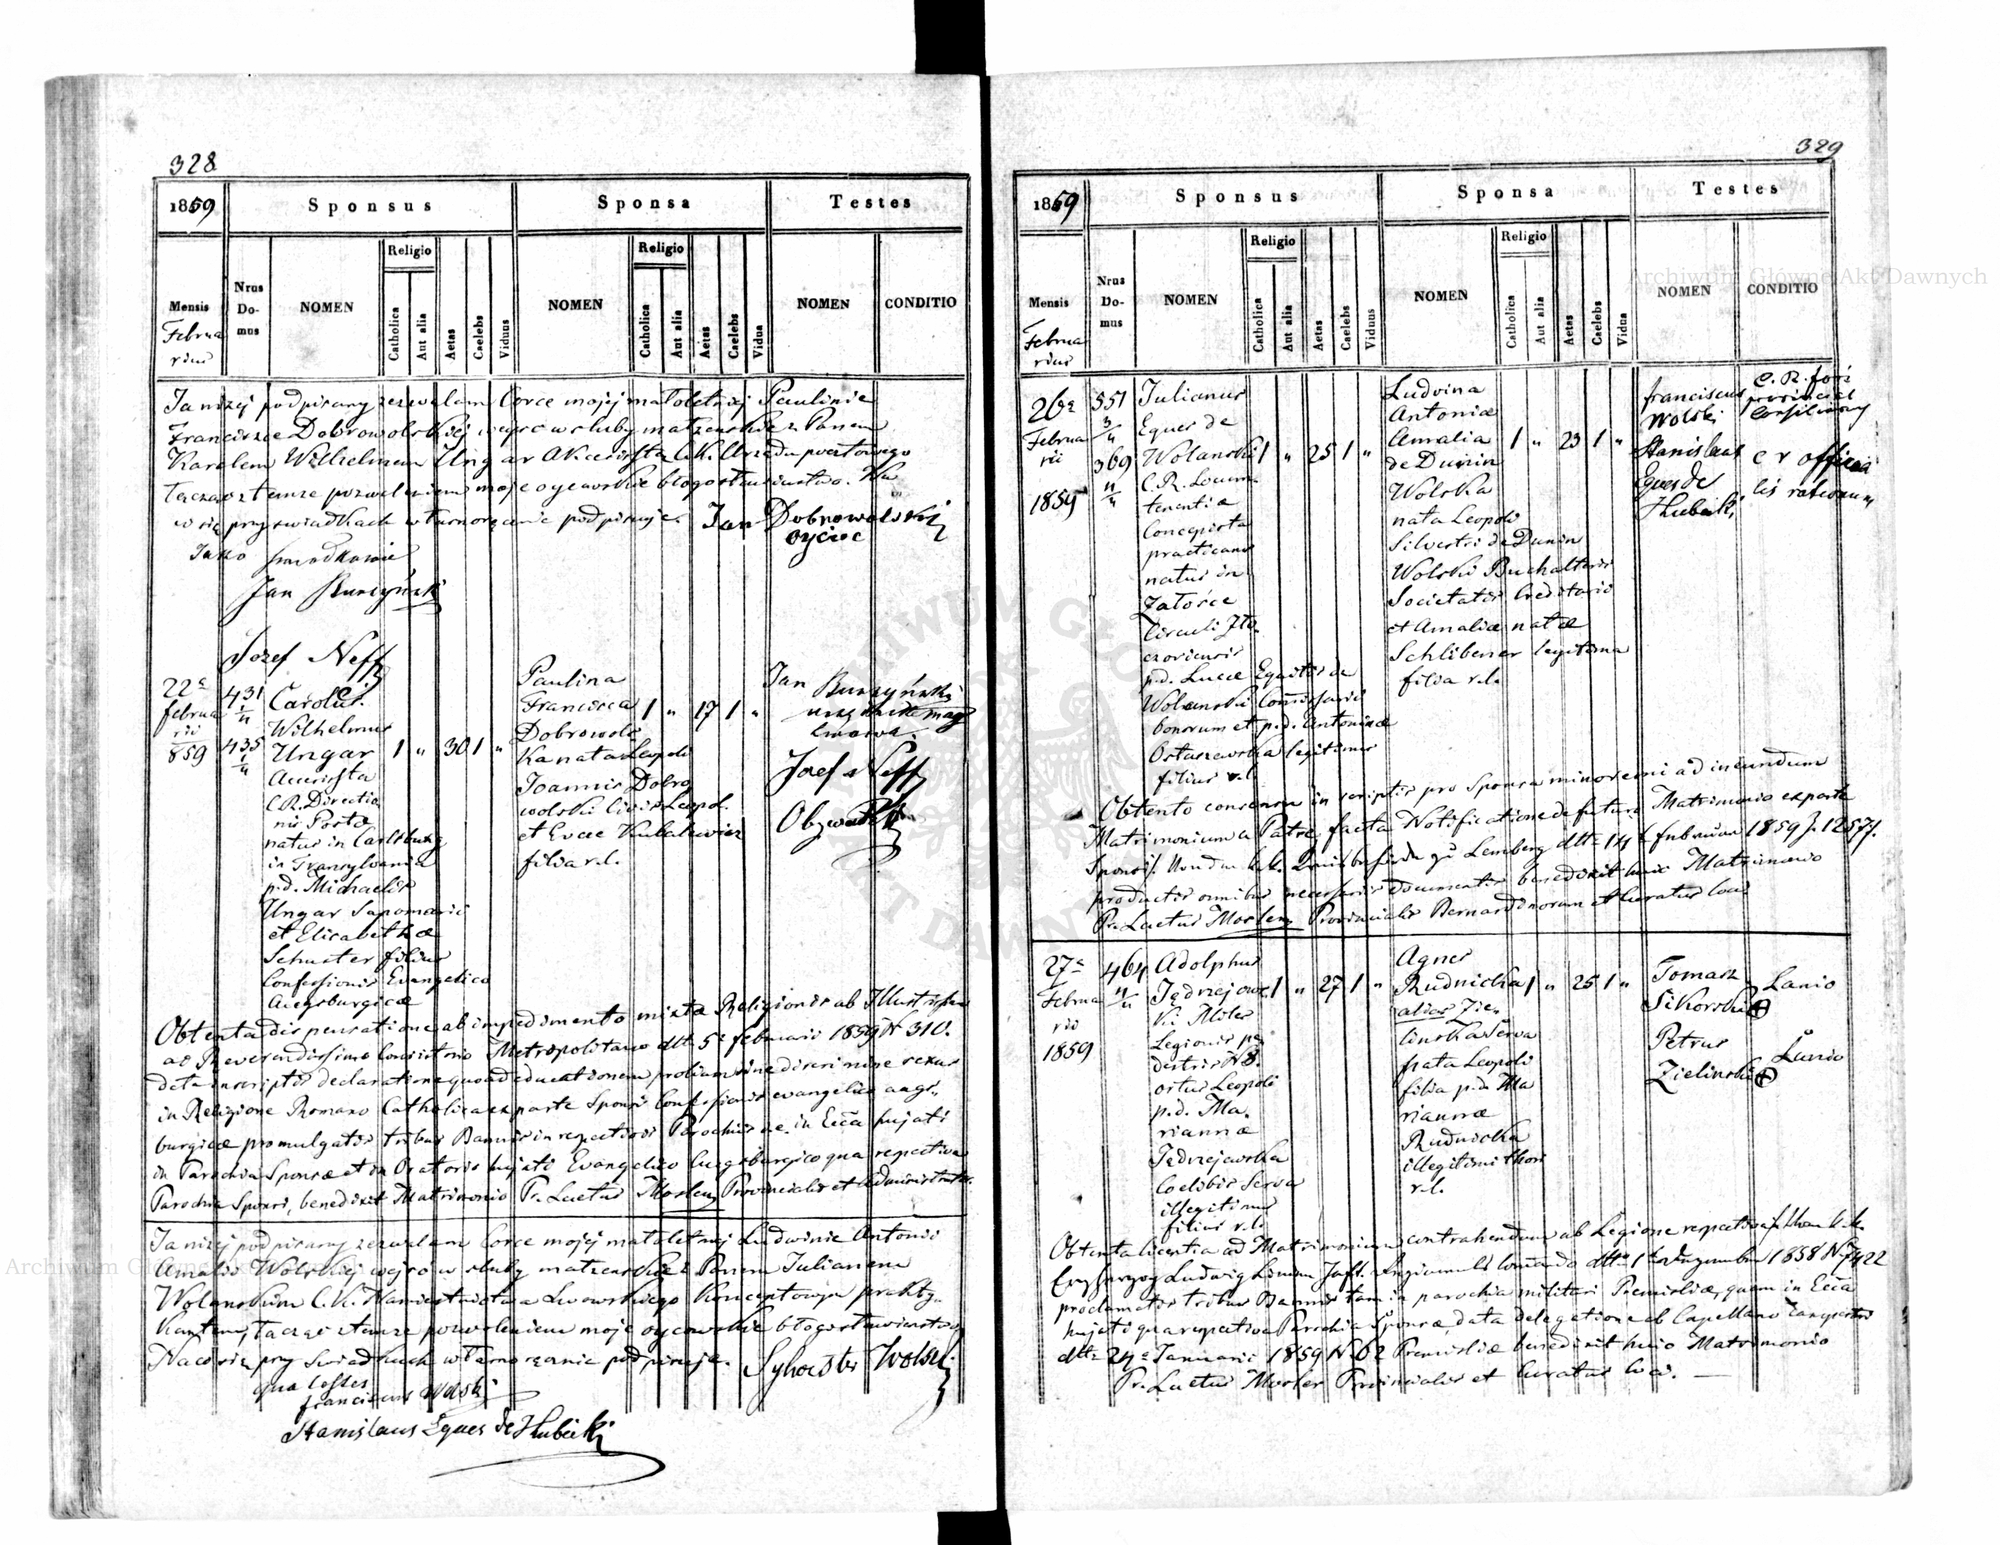 328
1859
Sponsus
Sponsa
Testes
Mensis
Februa
rius
Nrus
Do-
mus
NOMEN
Religio
Catholica
Aut alia
Aetas
Caelebs
Viduus
NOMEN
Religio
Catholica
Aut alia
Aetas
Caelebs
Vidua
NOMEN
CONDITIO
Ja niżej podpisany zezwalam Corce mojej małoletniej Paulinie
Franciszce Dobrowolskiej wejść w śluby małżeńskie z Panem
Karolem Wilhelmem Ungar Akcesistą C.K. Urzędu pocztowego
łącząc z temże pozwoleniem moje oycowskie błogosławieństwo. Na
co się przy świadkach własnoręcznie podpisuję. Jan Dobrowolski
oyciec
Jako świadkowie
Jan Burzyński
Jozef Neff
22a
februa
rii
859
431
1/4
435
1/4
Carolus
Wilhelmus
Ungar
Accessista
C.R. Directio
nis Postæ
natus in Carlsburg
in Transylvania
p.d. Michaelis
Ungar
et Elisabethæ
Schuster filius
Confessionis Evangelicæ
Augsburgicæ
1 " 30 1 "
Paulina
Francisca
Dobrowols
ka nata Leopoli
Joannis Dobro
wolski Civis Leopol.
et Evae Kubalewicz
filia r.l.
1 " 17 1 "
Jan Burzyński
Jozef Neff
Obywatel
Obtenta dispensatione ab impedimento mixtæ Religionis ab Illustrissimo
ac Reverendissimo Consistorio Metropolitano dtto 5a februarii 1859 N 310.
data in scriptis declaratione quoad educationem prolium sine discrimine sexus
in Religione Romano Catholica ex parte Sponsi Confessionis evangelicæ augs-
burgicæ promulgatis tribus Bannis in respectivis Parochiis ae. in Ecclã hujati
in Parochia Sponsæ et in Oratorio hujati Evangelico Augsburgico qua respectiva
Parochia Sponsi, benedixit Matrimonio Pr. Lætus Mosler Provincialis et Administrator.
Ja niżej podpisany zezwalam Corce mojej małoletniej Ludwinie Antonii
Amalii Wolskiej wejść w śluby małżeńskie z Panem Julianem
Wolanskim C.K. Namiestnictwa Lwowskiego Konceptowym prakty-
kantem, łącząc z temże pozwoleniem moje oycowskie błogosławieństwo.
Na co się przy świadkach własnoręcznie podpisuję. Sylwester Wolski
qua testes
franciscus Wolski
Stanislaus Eques de Hubicki
329
1859
Sponsus
Sponsa
Testes
Mensis
Februa
rius
Nrus
Do-
mus
NOMEN
Religio
Catholica
Aut alia
Aetas
Caelebs
Viduus
NOMEN
Religio
Catholica
Aut alia
Aetas
Caelebs
Vidua
NOMEN
CONDITIO
26a
Februa
rii
1859
551
3/4
369
4/4
Julianus
Eques de
Wolanski
C.R. Locum
tenentiæ
Concepista
practicans
natus in
Załośce
Circuli Zło
czoviensis
p.d. Lucæ Equitis de
Wolanski Comissarii
bonorum et p.d. Antoninæ
Ostaszewska legitimus
filius r.l.
1 " 25 1 "
Ludvina
Antonia
Amalia
de Dunin
Wolska
nata Leopoli
Silvestri de Dunin
Wolski Buchalteri
Societatis Creditoriæ
et Amaliæ natæ
Schlibener legitima
filia r.l.
1 " 23 1 "
franciscus
Wolski
Stanislaus
Eques de
Hubicki
C.R. fori
provincial
Consiliarius
c r officia
lis rationum
Obtento consensu in scriptis pro Sponsa minorenni ad ineundum
Matrimonium a Patre, facta Notificatione de futuro Matrimonio ex parte
Sponsi. dtto 14 februar 1859 Z. 12571.
productis omnibus necessariis documentis benedixit huic Matrimonio
Pr. Lætus Mosler Provincialis Bernardinorum et Curatus loci
27a
Februa
rii
1859
464
4/4
Adolphus
Jędrzejows
ki Miles
Legionis pe
destris N 8.
ortus Leopoli
p.d. Ma
riannæ
Jędrzejewska
Coelibis Serva
illegitimus
filius r.l.
1 " 27 1 "
Agnes
Rudnicka
alias Zie
linska Serva
nata Leopoli
filia p.d. Ma
riannæ
Rudnicka
illegitimi thori
r.l.
1 " 25 1 "
Tomasz
Sikorski
Petrus
Zielinski
Lanio
Lanio
Obtenta licentia ad Matrimonium contrahendum ab Legione respectiva
Erzherzog Ludwig 1858 N 7422
proclamatis tribus Bannis tam in parochia militari Premisliæ, quam in Ecclã
hujati qua respectiva Parochia Sponsæ, data delegatione ab Capellano
dtto 24a Januarii 1859 N 62 Premisliæ benedixit huic Matrimonio
Pr. Lætus Mosler Provincialis et Curatus loci.
Archiwum Główne Akt Dawnych